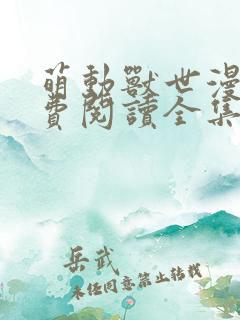 萌動獸世漫
費閱讀全集
岳武
未经同意禁止转载